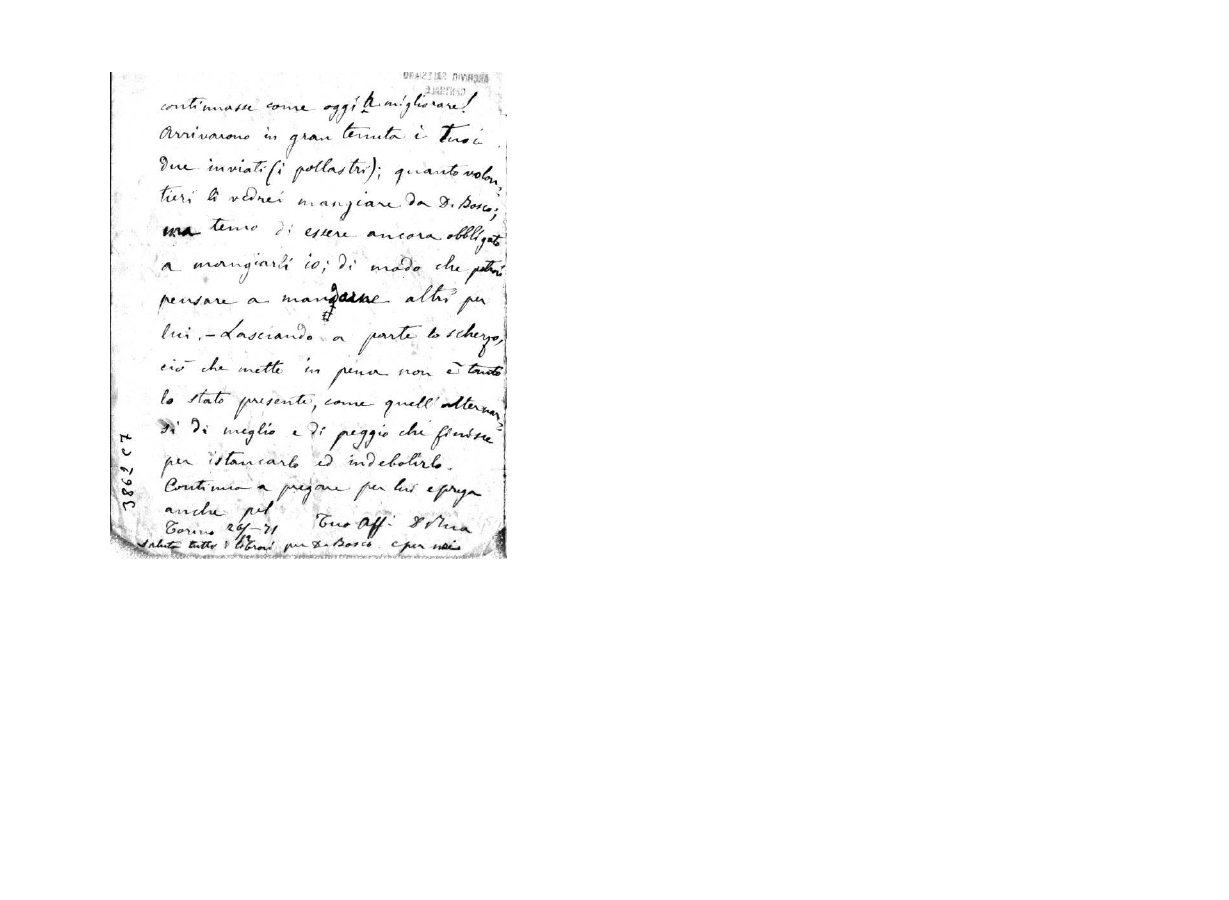 ARCHIVIO SALESIANO
CENTRALE
continuasse come oggi a migliorare!
Arrivarono in gran tenuta i tuoi
due inviati (i pollastri); quanto volon-
tieri li vedrei mangiare da D. Bosco;
ma temo di essere ancora obbligato
a mangiarli io; di modo che potrai
pensare a mandarne altri per
lui. – Lasciando a parte lo scherzo,
ciò che mette in pena non è tanto
lo stato presente, come quell'alternar-
si di meglio e di peggio che finisce
per istancarlo ed indebolirlo.
Continua a pregare per lui e prega
anche pel
Torino 26/12 – 71 Tuo Aff. D Rua
Saluta tutti i per D. Bosco e per noi